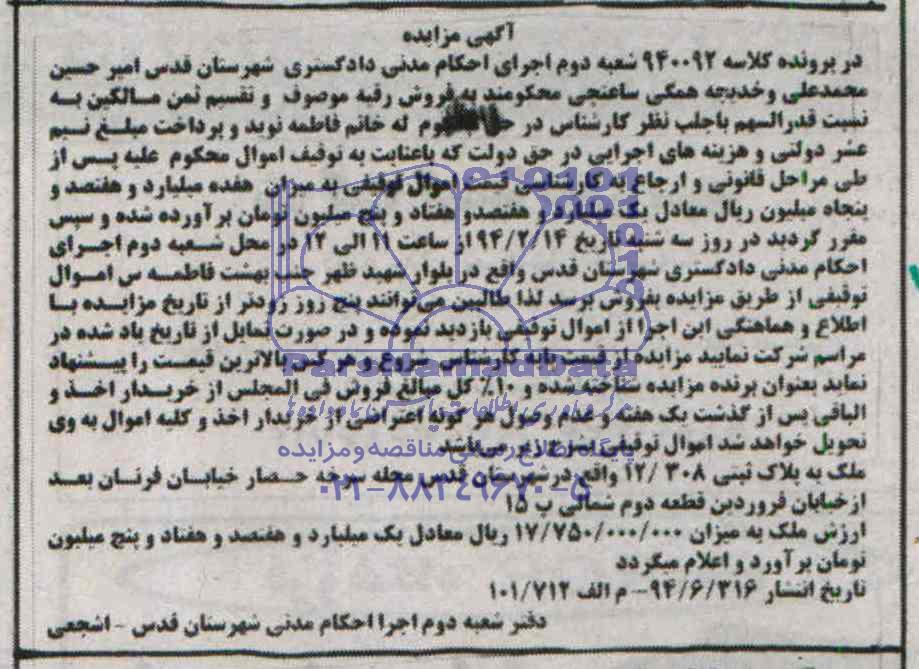 آگهی مزایده
در پرونده کلاسه ۹۴۰۰۹۲ شعبه دوم اجرای احکام مدنی دادگستری شهرستان قدس امیر حسین
محمدعلی وخدیجه همگی ساعتچی محکومند به فروش رقبه موصوف و تقسیم ثمن مالکین به
نسبت قدرالسهم باجلب نظر کارشناس در له خانم فاطمه نوید و پرداخت مبلغ نیم
عشر دولتی و هزینه های اجرایی در حق دولت که باعنایت به توقیف اموال محکوم علیه پس از
طی مراحل قانونی و ارجاع به کارشناسی قیمت اموال توقیفی به میزان هفده میلیارد و هفتصد و
پنجاه میلیون ریال معادل یک میلیارد و هفتصدو هفتاد و پنج میلیون تومان برآورده شده و سپس
مقرر گردید در روز سه شنبه تاریخ از ساعت ۱۱ الی ۱۲ در محل شعبه دوم اجرای
احکام مدنی دادگستری شهرستان قدس واقع در بلوار شهید ظهر جنب بهشت فاطمه س اموال
توقیفی از طریق مزایده بفروش برسد لذا طالبین می‌توانند پنج روز زودتر از تاریخ مزایده با
اطلاع و هماهنگی این اجرا از اموال توقیفی بازدید نموده و در صورت تمایل از تاریخ یاد شده در
مراسم شرکت نمایید مزایده از قیمت پایه کارشناس شروع و هر کس بالاترین قیمت را پیشنهاد
نماید بعنوان برنده مزایده شناخته شده و ۱۰٪ کل مبالغ فروش فی المجلس از خریدار اخذ و
الباقی پس از گذشت یک هفته و عدم وصول هر گونه اعتراضی از خریدار اخذ و کلیه اموال به وی
تحویل خواهد شد اموال توقیفی بشرح زیر میباشد
ملک به پلاک ثبتی ۳۰۸ /۱۲ واقع درشهرستان قدس محله سرخه حصار خیابان فرنان بعد
ازخیابان فروردین قطعه دوم شمالی پ ۱۵
ارزش ملک به میزان ۱۷/۷۵۰/۰۰۰/۰۰۰ ریال معادل یک میلیارد و هفتصد و هفتاد و پنج میلیون
تومان برآورد و اعلام میگردد
تاریخ انتشار ۹۴/۶/۳۱۶- م الف ۱۰۱/۷۱۲
دفتر شعبه دوم اجرا احکام مدنی شهرستان قدس - اشجعی
ParsNamadData
پایگاه اطلاع رسانی مناقصه و مزایده
۰۲۱-۸۸۳۴۹۶۷۰-۵